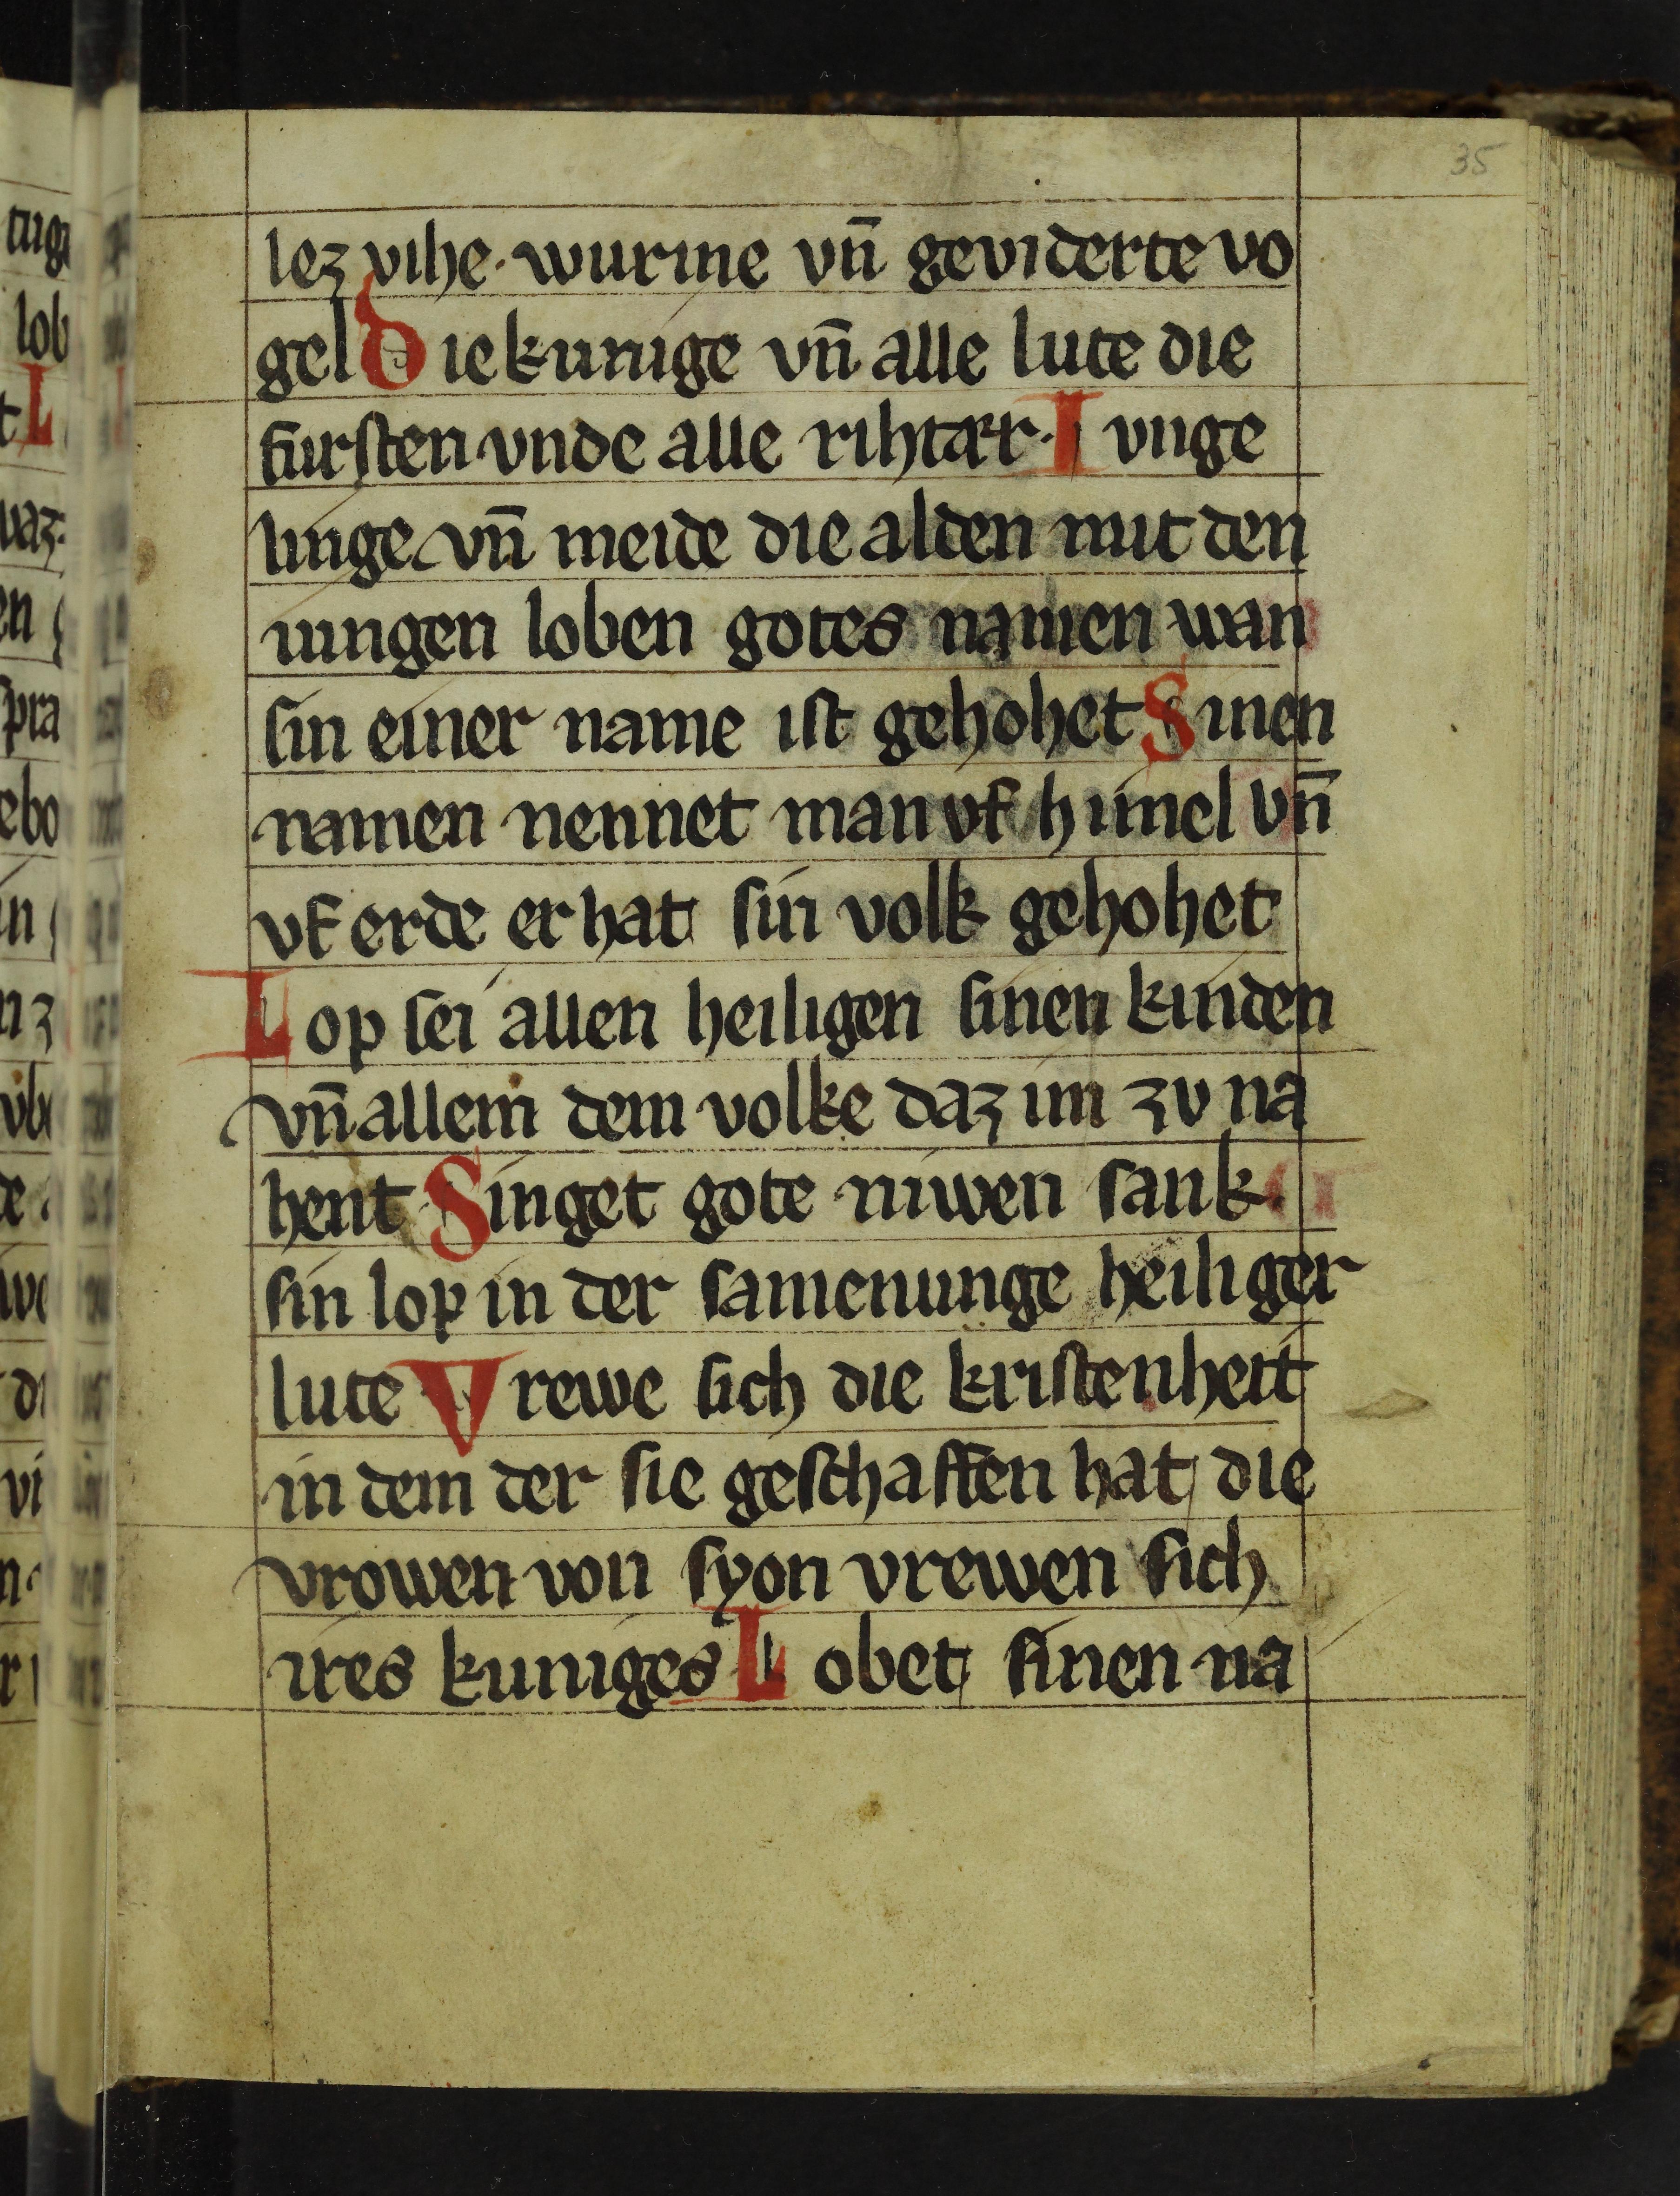 35
lez vihe · wurme vn̄ geviderte vo
gel Die kunige vn̄ alle lute die
fursten vnde alle rihtær · Iunge
linge vn̄ meide die alden mit den
iungen loben gotes namen wan
sin einer name ist gehohet Sinen
namen nennet man vf himel vn̄
vf erde er hat sin volk gehohet
Lop sei allen heiligen sinen kinden
vn̄ allem dem volke daz im zv na
hent Singet gote niwen sank .
sin lop in der samenunge heiliger
lute Vrewe sich die kristenheit
in dem der sie geschaffen hat die
vrowen von syon vrewen sich
ires kuniges Lobet sinen na